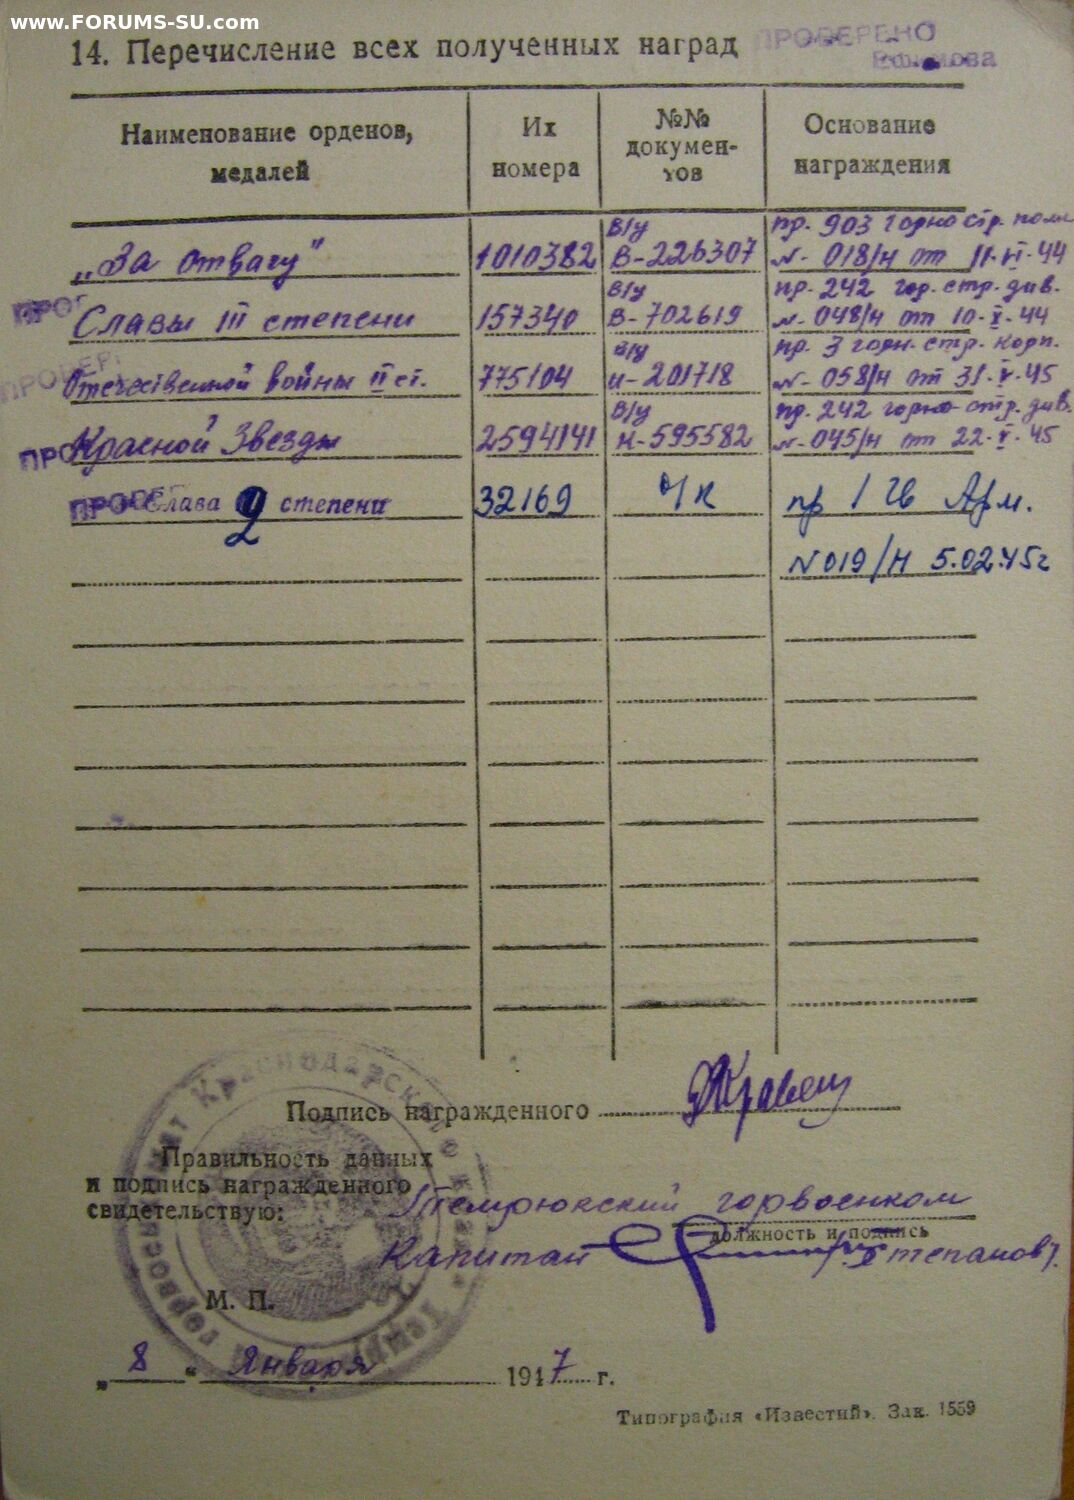 www.FORUMS-SU.com
14. Перечисление всех полученных наград
ПРОВЕРЕНО
Наименование орденов, медалей
Их номера
№№ документов
Основание награждения
„За отвагу" 1010382 В/у В-226307 пр. 903 горно стр. полк № 018/н от 11-VI-44
Славы III степени 157340 В/у В-702619 пр. 242 гор. стр. див. № 048/н от 10-X-44
Отечественной войны II ст. 775104 В/у и-201718 пр. 3 горн. стр. корп. № 058/н от 31-V-45
Красной Звезды 2594141 В/у К-595582 пр. 242 горно-стр. див. № 045/н от 22-V-45
Слава 2 степени 32169 ч/к пр 1 Гв Арм.
N 019/н 5.02.45г
ПРОВЕР
Подпись награжденного
Правильность данных
и подпись награжденного
свидетельствую:
Темрюкский горвоенком
должность и подпись
Капитан /Степанов/.
М. П.
„ 8 " Января 1947 г.
Типография «Известий». Зак. 1559